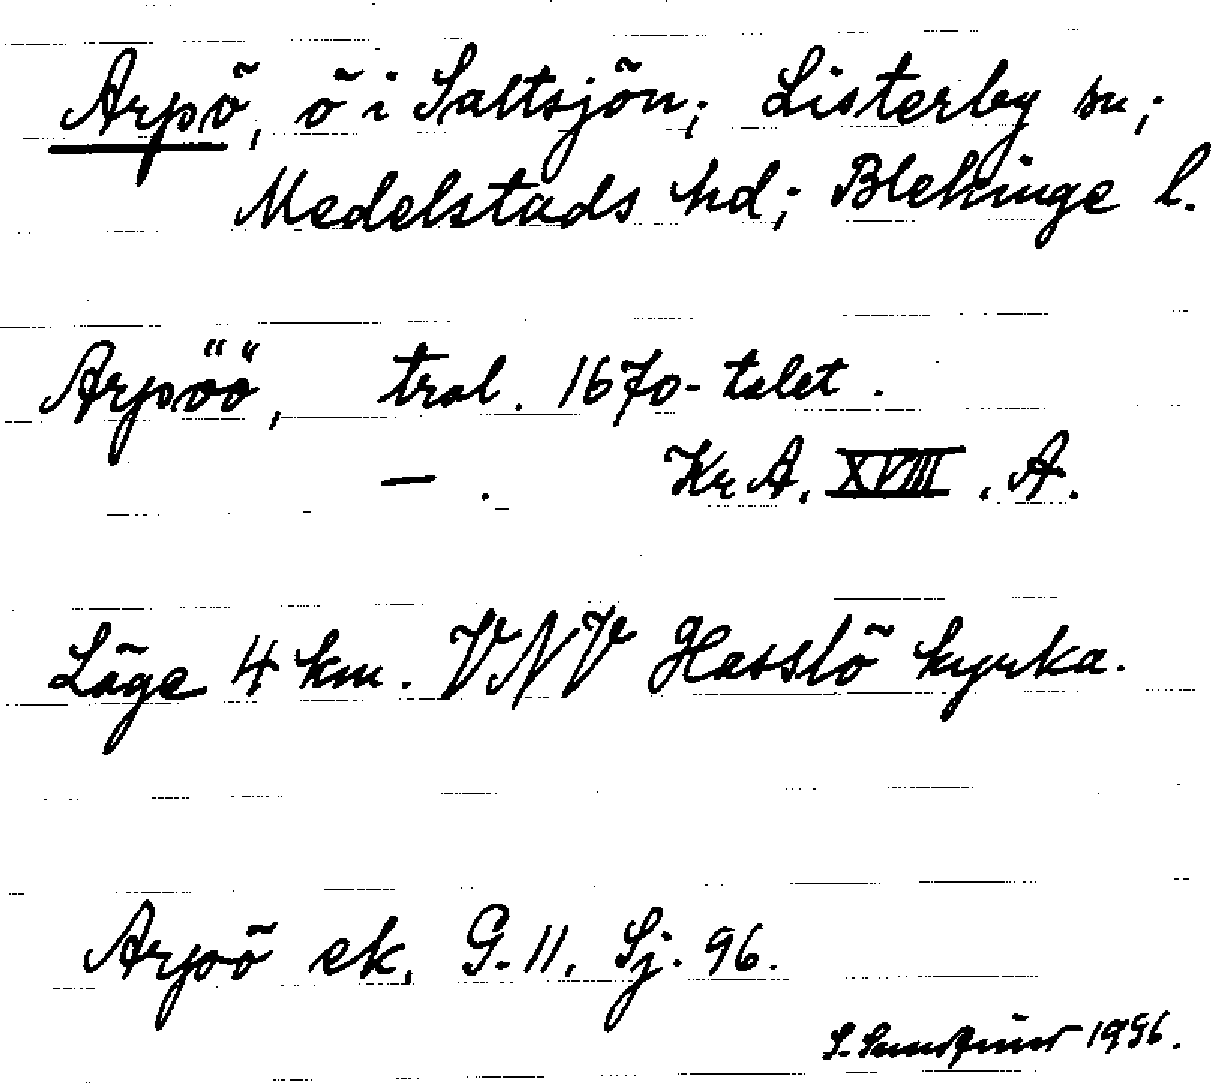 Arpö, ö i Saltsjön; Listerby sn;
Medelstads hd; Blekinge l.
Arpöö, tral. 1670-talet.
— . KrA. XVIII. A.
Läge 4 km. VNV Hasslö kyrka.
Arpö ek. G. 11. Sj. 96.
S. 1996.